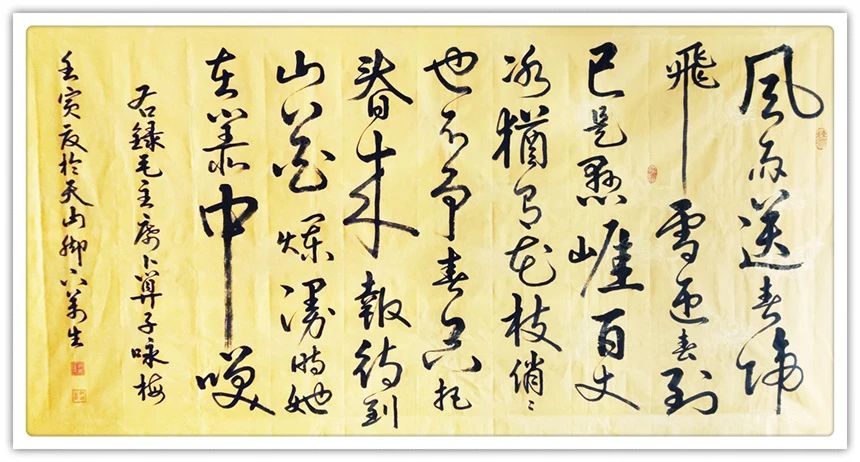 風雨送春歸
飛雪迎春到
已是懸崖百丈
冰猶有花枝俏〻
也不争春只把
春來報待到
山花爛漫時她
在叢中咲
右録毛主席卜算子咏梅
壬寅夏於天山脚下萬生